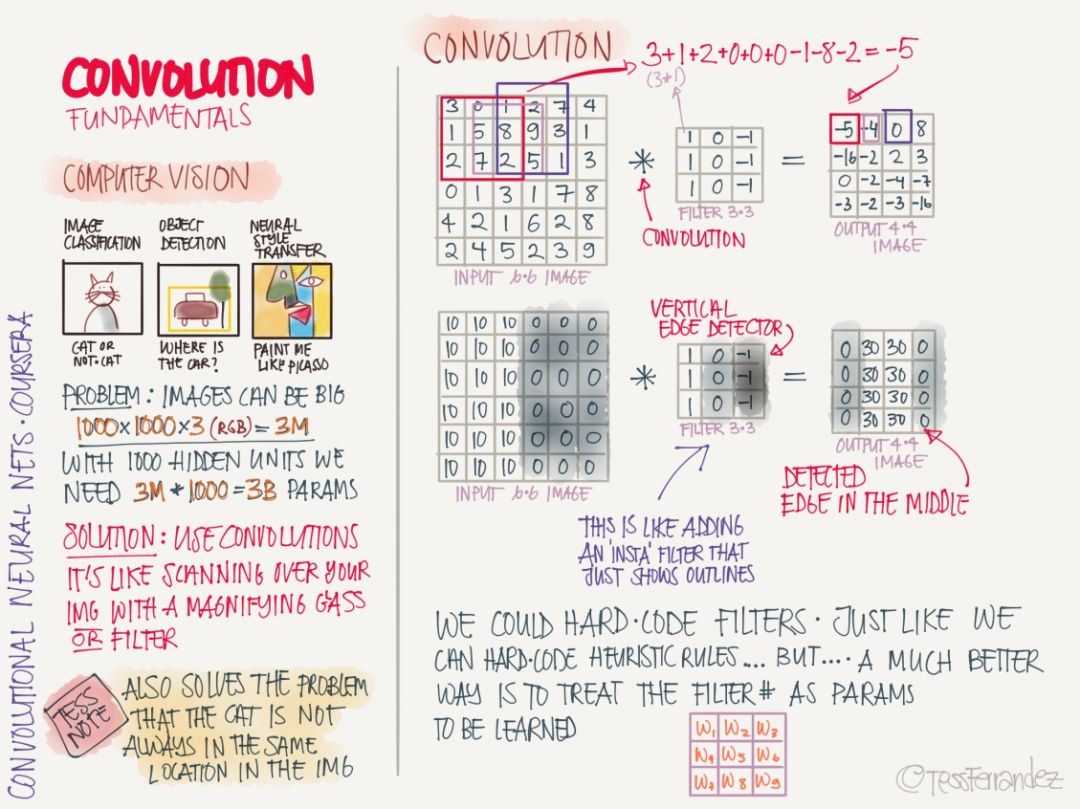 CONVOLUTIONAL NEURAL NETS · COURSERA
CONVOLUTION
FUNDAMENTALS
COMPUTER VISION
IMAGE
CLASSIFICATION
CAT OR
NOT·CAT
OBJECT
DETECTION
WHERE IS
THE CAR?
NEURAL
STYLE
TRANSFER
PAINT ME
LIKE PICASSO
PROBLEM: IMAGES CAN BE BIG
1000×1000×3 (RGB) = 3M
WITH 1000 HIDDEN UNITS WE
NEED 3M * 1000 = 3B PARAMS
SOLUTION: USE CONVOLUTIONS
IT'S LIKE SCANNING OVER YOUR
IMG WITH A MAGNIFYING GLASS
OR FILTER
TESS
NOTE
ALSO SOLVES THE PROBLEM
THAT THE CAT IS NOT
ALWAYS IN THE SAME
LOCATION IN THE IMG
CONVOLUTION
3+1+2+0+0+0-1-8-2 = -5
(3*1)
3 0 1 2 7 4
1 5 8 9 3 1
2 7 2 5 1 3
0 1 3 1 7 8
4 2 1 6 2 8
2 4 5 2 3 9
INPUT 6·6 IMAGE
*
CONVOLUTION
1 0 -1
1 0 -1
1 0 -1
FILTER 3·3
=
-5 -4 0 8
-16 -2 2 3
0 -2 -4 -7
-3 -2 -3 -16
OUTPUT 4·4
IMAGE
10 10 10 0 0 0
10 10 10 0 0 0
10 10 10 0 0 0
10 10 10 0 0 0
10 10 10 0 0 0
10 10 10 0 0 0
INPUT 6·6 IMAGE
*
VERTICAL
EDGE DETECTOR
1 0 -1
1 0 -1
1 0 -1
FILTER 3·3
=
0 30 30 0
0 30 30 0
0 30 30 0
0 30 30 0
OUTPUT 4·4
IMAGE
DETECTED
EDGE IN THE MIDDLE
THIS IS LIKE ADDING
AN 'INSTA' FILTER THAT
JUST SHOWS OUTLINES
WE COULD HARD·CODE FILTERS · JUST LIKE WE
CAN HARD·CODE HEURISTIC RULES.... BUT.... A MUCH BETTER
WAY IS TO TREAT THE FILTER # AS PARAMS
TO BE LEARNED
W1 W2 W3
W4 W5 W6
W7 W8 W9
©TessFerrandez